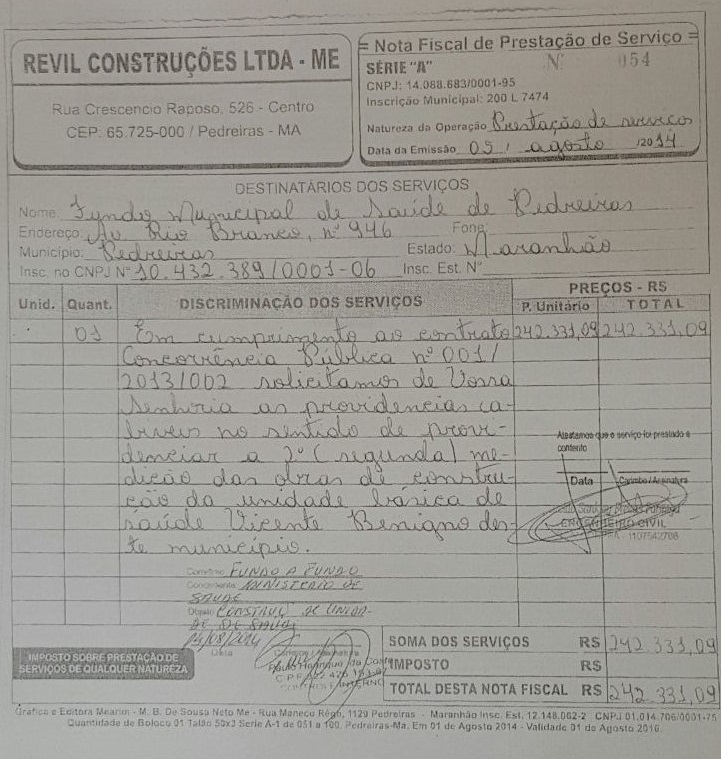 REVIL CONSTRUÇÕES LTDA - ME
Rua Crescencio Raposo, 526 - Centro
CEP. 65.725-000 / Pedreiras - MA
Nota Fiscal de Prestação de Serviço
SÉRIE "A" Nº 054
CNPJ: 14.088.683/0001-95
Inscrição Municipal: 200 L 7474
Natureza da Operação Prestação de serviços
Data da Emissão 05 / agosto /2014
DESTINATÁRIOS DOS SERVIÇOS
Nome: Fundo Municipal de Saúde de Pedreiras
Endereço: Av Rio Branco, nº 946 Fone:
Município: Pedreiras Estado: Maranhão
Insc. no CNPJ Nº 10.432.389/0001-06 Insc. Est. Nº
Unid. Quant. DISCRIMINAÇÃO DOS SERVIÇOS PREÇOS - RS
P. Unitário TOTAL
01 Em cumprimento ao contrato 242.331,09 242.331,09
Concorrência Pública nº 001/
2013/002 solicitamos de Vossa
Senhoria as providencias ca-
biveis no sentido de provi-
denciar a 2ª (segunda) me-
dicão das obras de constru-
ção da unidade básica de
saúde Vicente Benigno des-
te município.
Atestamos que o serviço foi prestado a
contento
Data Carimbo / Assinatura
ENGENHEIRO CIVIL
1107542708
FUNDO A FUNDO
MINISTERIO DE
SAUDE
Objeto CONSTRUÇ DE UNIDA-
DE DE SAUDE
Data
IMPOSTO SOBRE PRESTAÇÃO DE
SERVIÇOS DE QUALQUER NATUREZA
SOMA DOS SERVIÇOS RS 242.331,09
IMPOSTO RS
TOTAL DESTA NOTA FISCAL RS 242.331,09
Gráfica e Editora Mearim - M. B. De Sousa Neto Me - Rua Maneco Rêgo, 1129 Pedreiras - Maranhão Insc. Est. 12.148.062-2 CNPJ 01.014.706/0001-75
Quantidade de Bolocos 01 Talão 50x3 Serie A-1 de 051 a 100. Pedreiras-Ma. Em 01 de Agosto 2014 - Validade 01 de Agosto 2016.